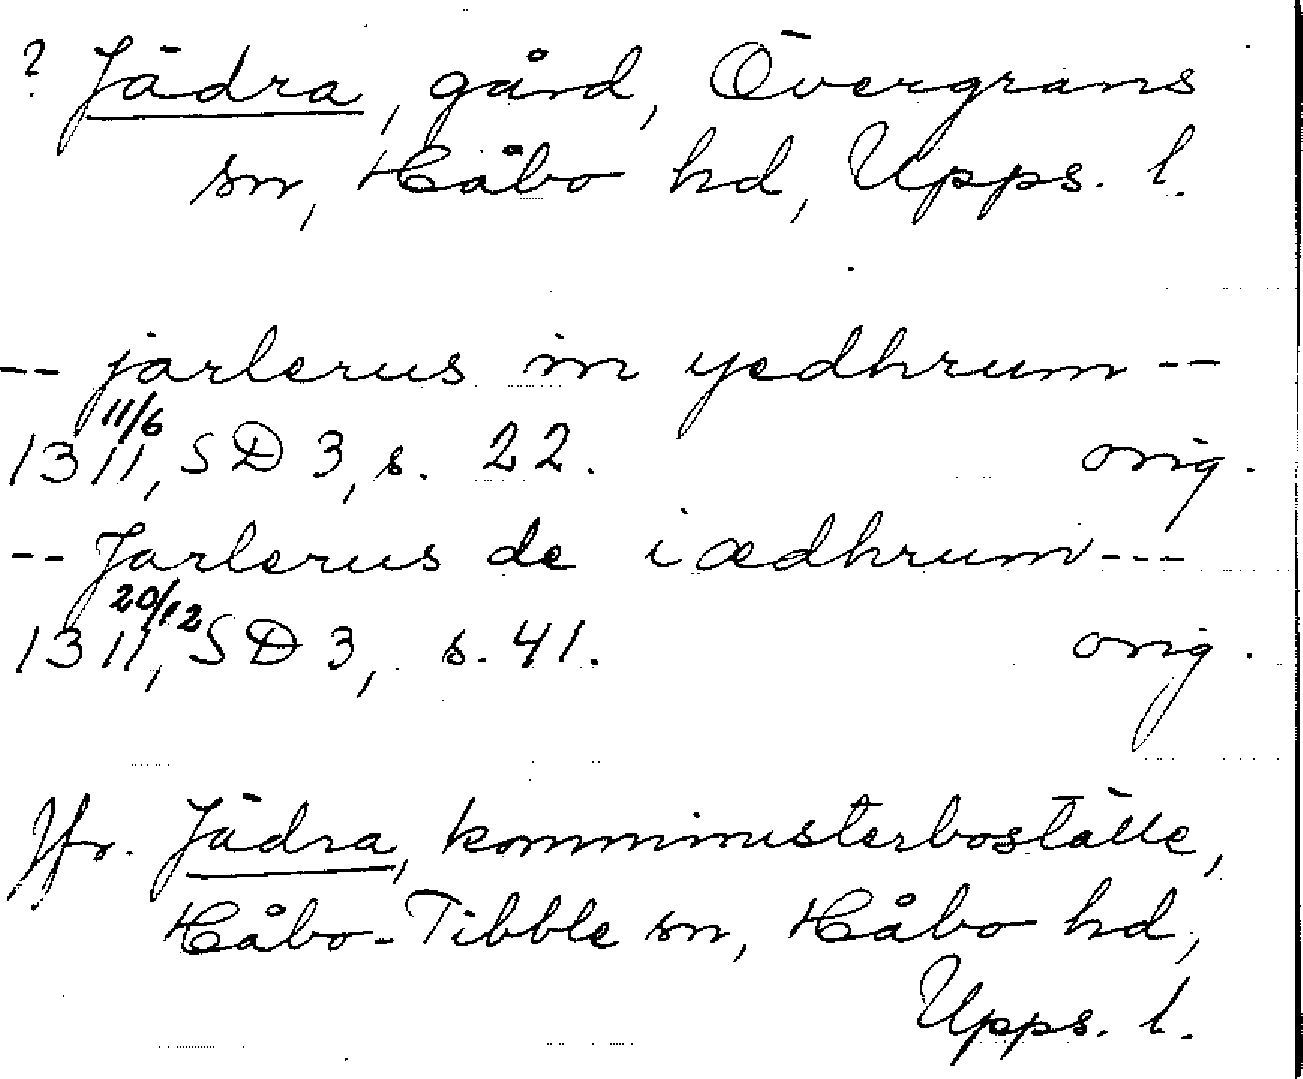 ? Jädra, gård, Övergrans
sn, Håbo hd, Upps. l.
-- jarlerus in yedhrum --
11/6
1311, SD 3, s. 22. orig.
-- Jarlerus de iædhrum ---
20/12
1311, SD 3, s. 41. orig.
Jfr. Jädra, komministerboställe,
Håbo-Tibble sn, Håbo hd,
Upps. l.